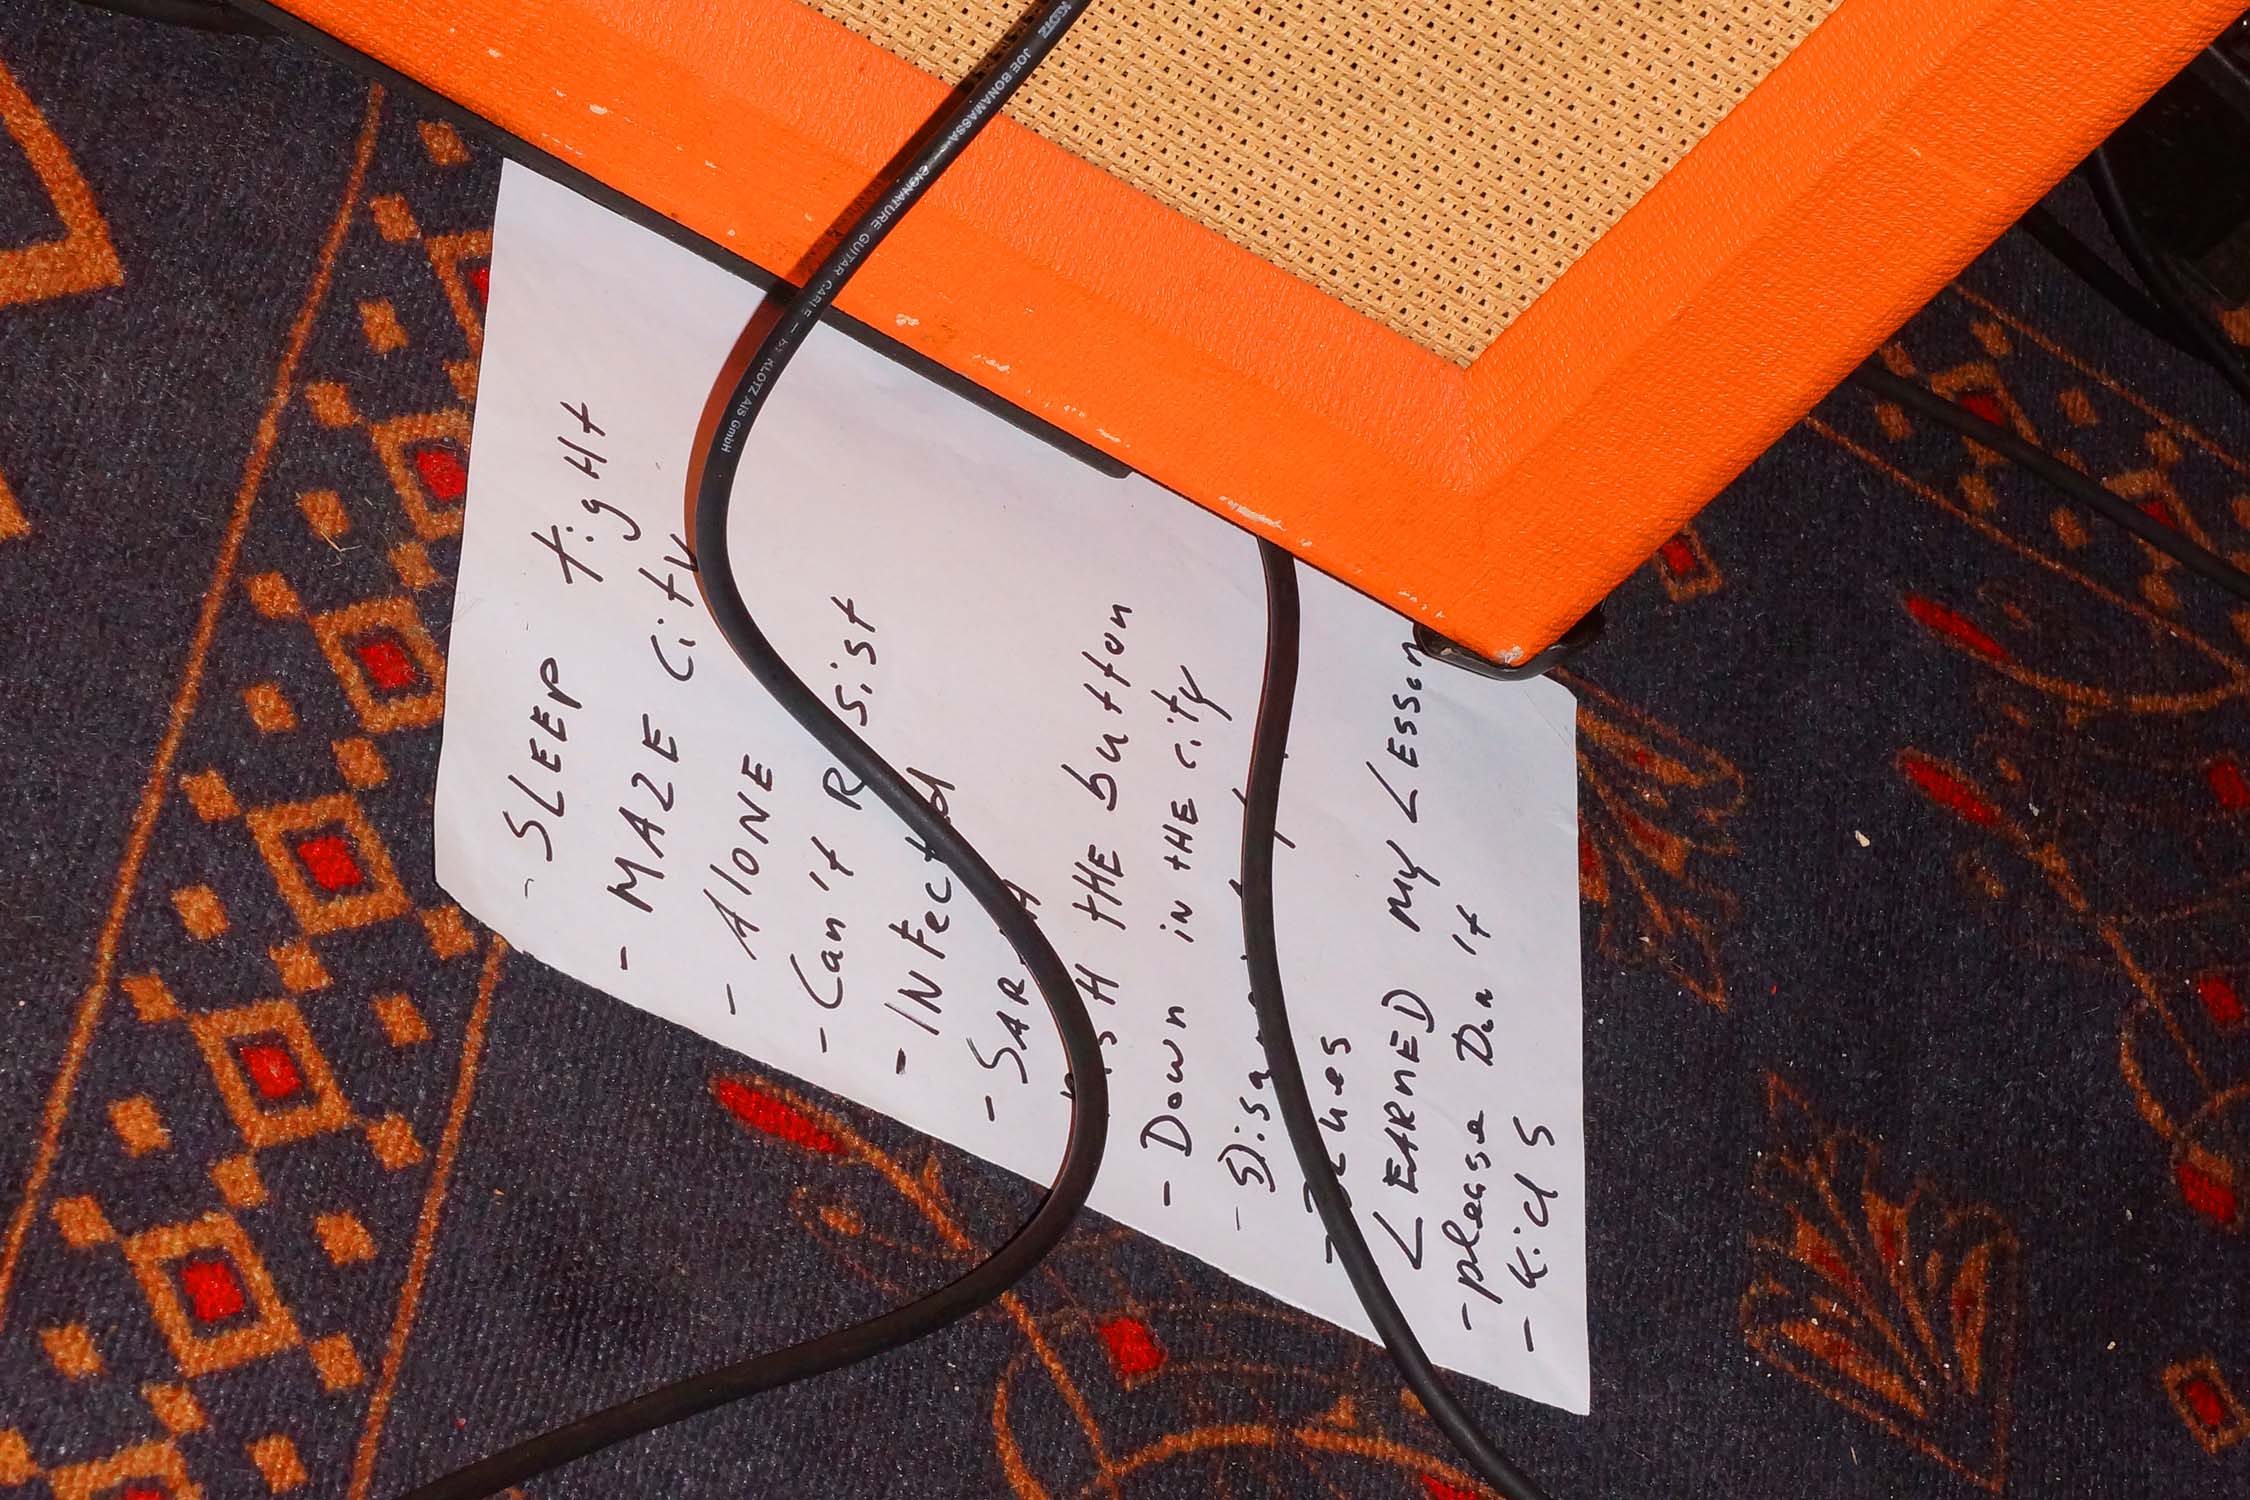 - SLEEP tigHt
- MAZE City
- AlONE
- Can't Resist
- INFected
- SARAH
THE button
- Down IN tHE city
-
- Blues
LEARnED my LEsson
- please Don't
- Kids
KLOTZ JOE BONAMASSA SIGNATURE GUITAR CABLE – by KLOTZ AIS GmbH